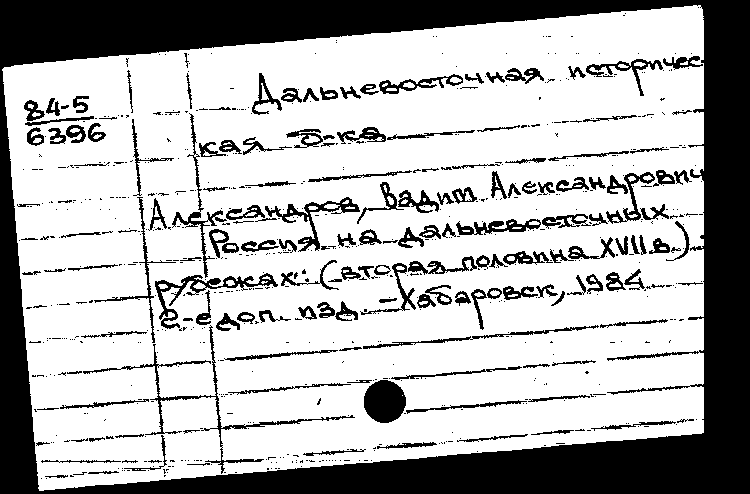 84-5
6396
Дальневосточная историчес-
кая б-ка
Александров, Вадим Александрович
Россия на дальневосточных
рубежах: (вторая половина XVII в.) .
2-е доп. изд. - Хабаровск, 1984